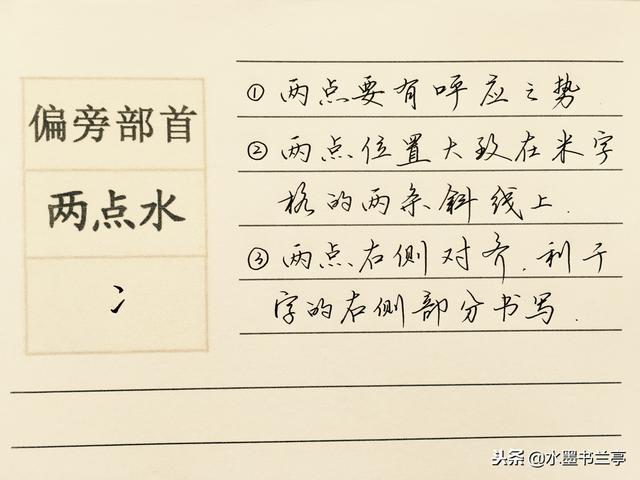 偏旁部首
两点水
冫
①两点要有呼应之势
②两点位置大致在米字
格的两条斜线上.
③两点右侧对齐.利于
字的右侧部分书写.
头条@水墨书兰亭